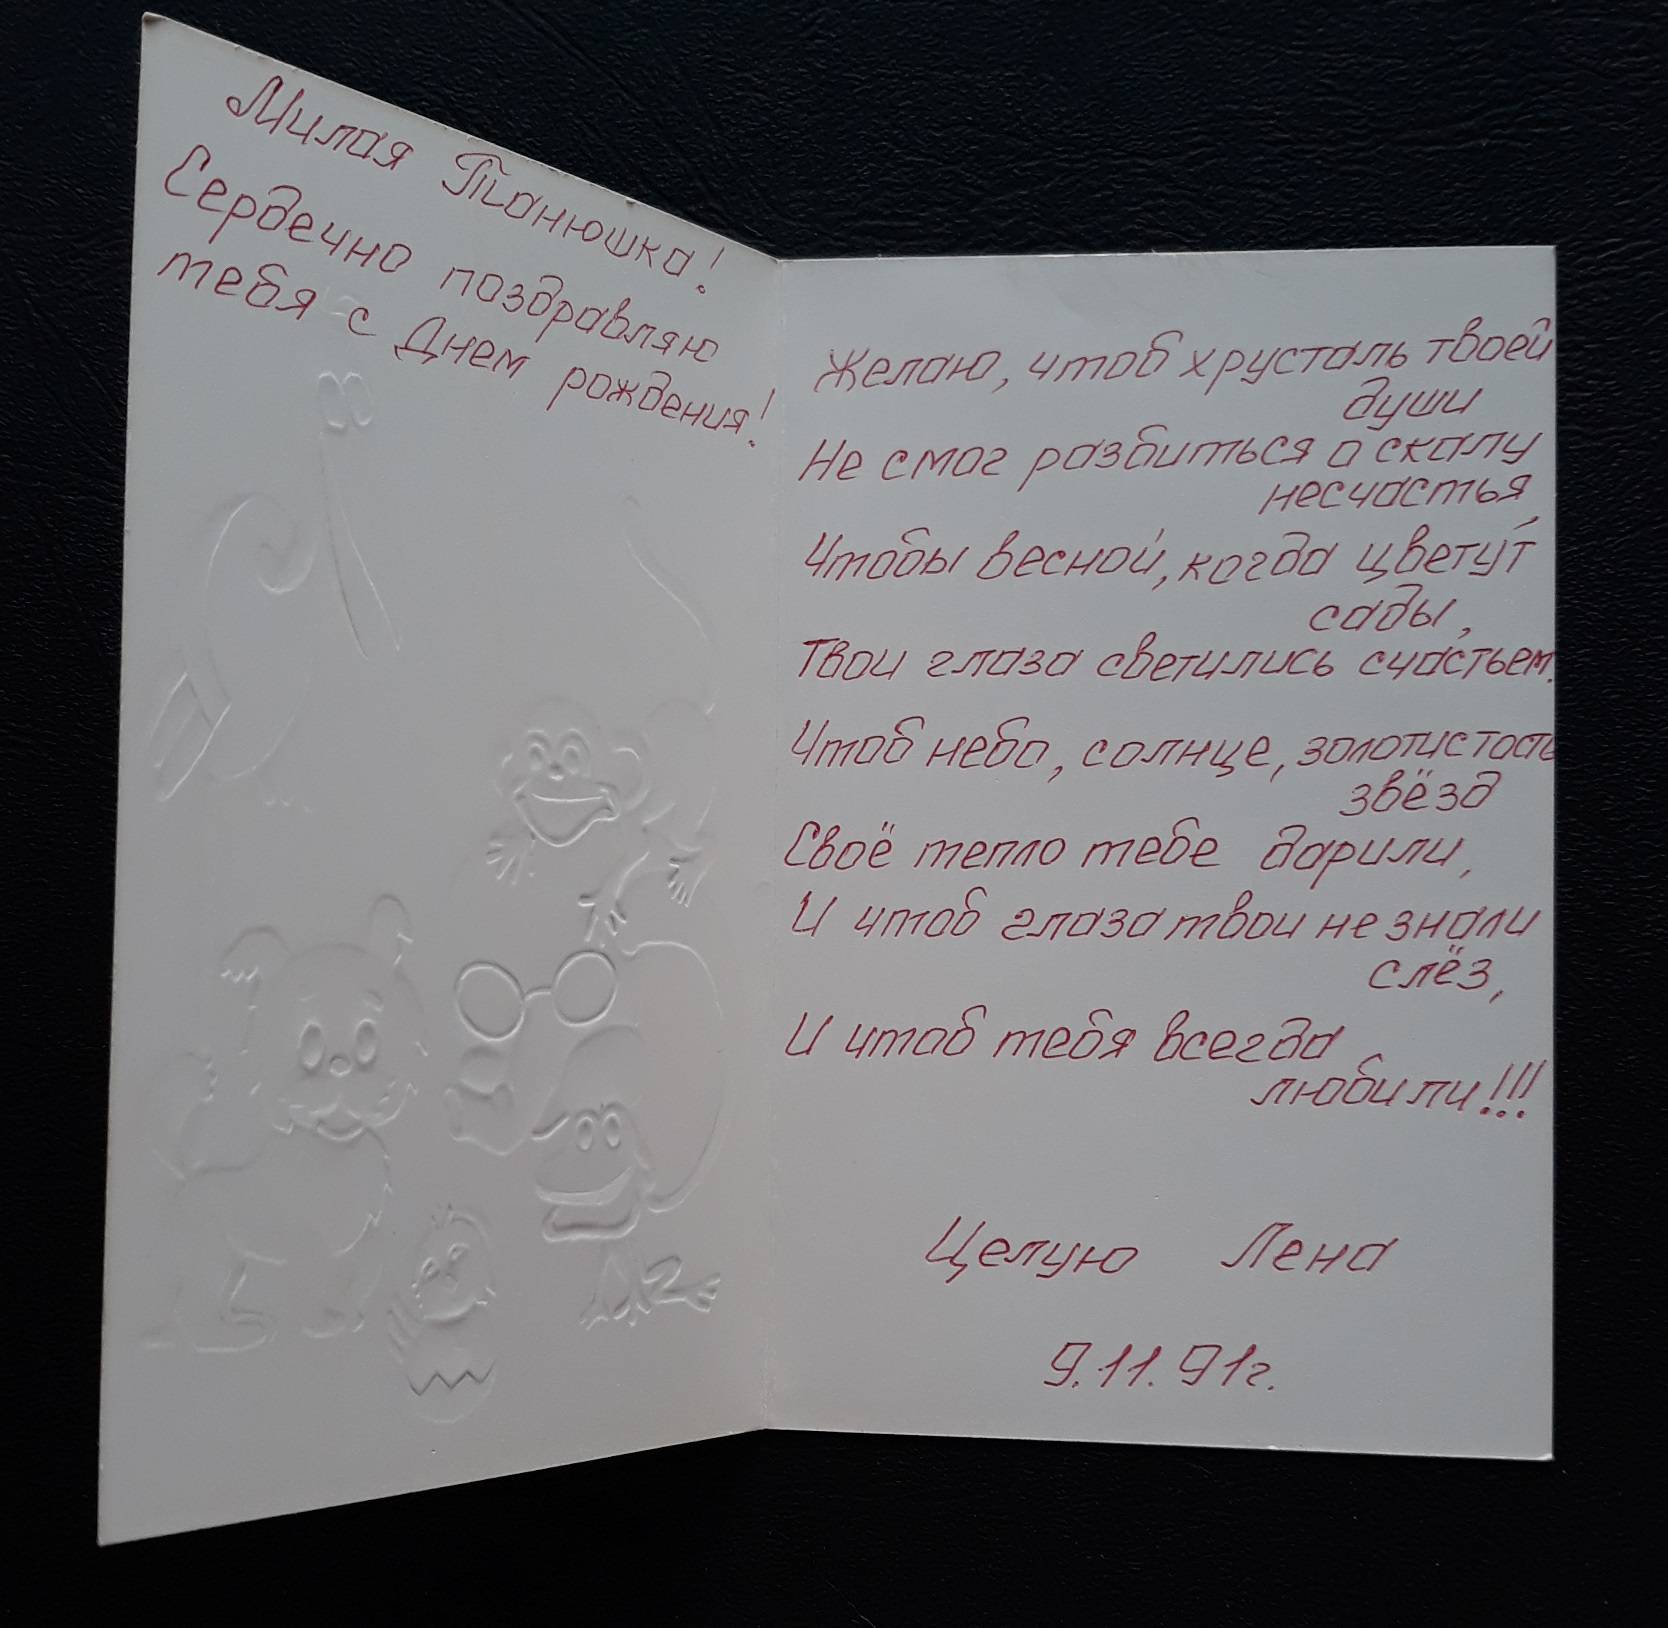 Милая Танюшка!
Сердечно поздравляю
тебя с Днем рождения!
Желаю, чтоб хрусталь твоей
души
Не смог разбиться о скалу
несчастья,
Чтобы весной, когда цветут
сады,
Твои глаза светились счастьем.
Чтоб небо, солнце, золотистость
звёзд
Своё тепло тебе дарили,
И чтоб глаза твои не знали
слёз,
И чтоб тебя всегда
любили!!!
Целую Лена
9.11.91г.